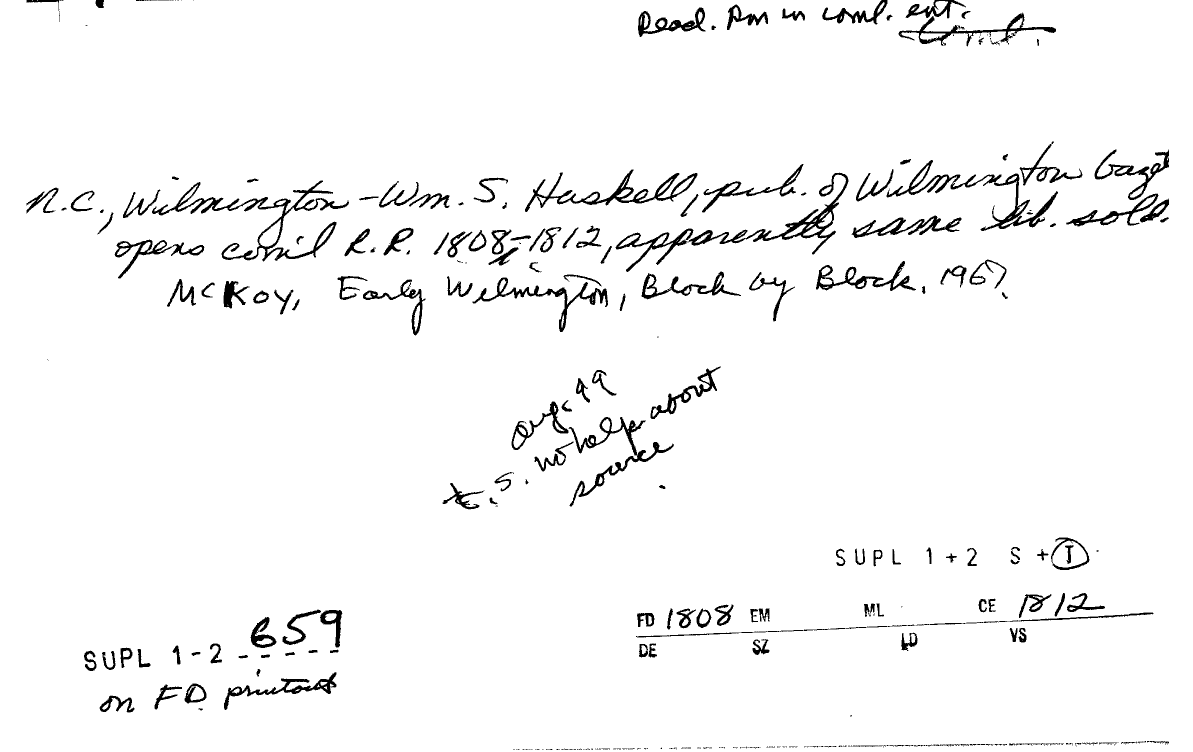 Read. Rm in coml. ent.
N.C., Wilmington - Wm. S. Haskell, pub. of Wilmington Gazet
opens com'l R.R. 1808-1812, apparently same lib. sold.
McKoy, Early Wilmington, Block by Block, 1967.
Aug. 99
no help about
source.
SUPL 1+2 S + I
FD 1808 EM ML CE 1812
DE SZ LD VS
SUPL 1-2 659
on FD printout